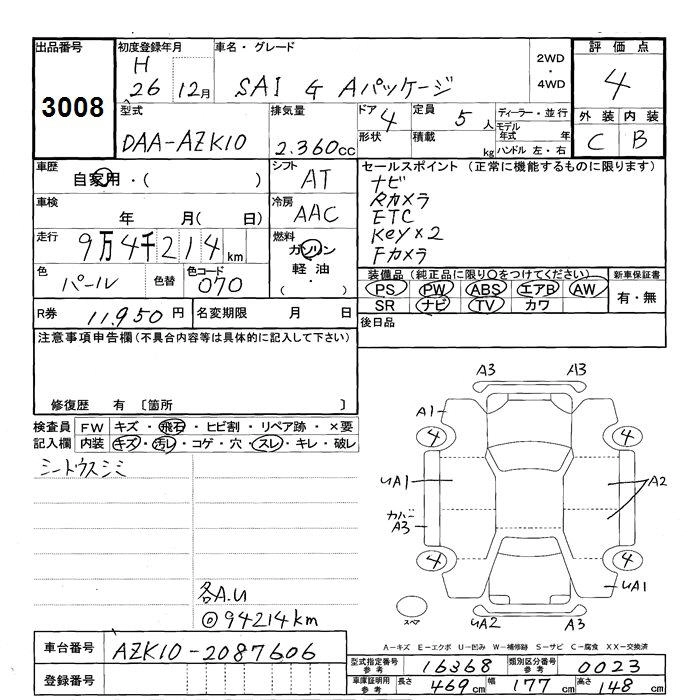 出品番号
3008
初度登録年月
H
26 12月
車名・グレード
SAI G Aパッケージ
2WD
・
4WD
評価点
4
外装 内装
C B
型式
DAA-AZK10
排気量
2.360cc
ドア 4
形状
定員 5人
積載 kg
ディーラー・並行
モデル年式 年
ハンドル 左・右
車歴
自家用・( )
シフト
AT
車検
年 月( 日)
冷房
AAC
走行
9万4千214km
燃料
ガソリン
軽油
( ・ )
色
パール
色替
色コード
070
セールスポイント (正常に機能するものに限ります)
ナビ
Rカメラ
ETC
Key×2
Fカメラ
装備品(純正品に限り○をつけてください)
PS PW ABS エアB AW
SR ナビ TV カワ
新車保証書
有・無
R券 11,950円
名変期限 月 日
後日品
注意事項申告欄(不具合内容等は具体的に記入して下さい)
修復歴 有 〔箇所 〕
検査員記入欄
FW キズ・飛石・ヒビ割・リペア跡・×要
内装 キズ・汚レ・コゲ・穴・スレ・キレ・破レ
シートウスシミ
各A.U
◎94214km
A3 A3
A1
4 4
UA1 A2
カバー
A3
4 4
UA1
スペア
UA2 A3
A-キズ E-エクボ U-凹み W-補修跡 S-サビ C-腐食 XX-交換済
車台番号 AZK10-2087606
登録番号
型式指定番号 参考 16368
類別区分番号 参考 0023
車庫証明用 参考 長さ 469cm 幅 177cm 高さ 148cm